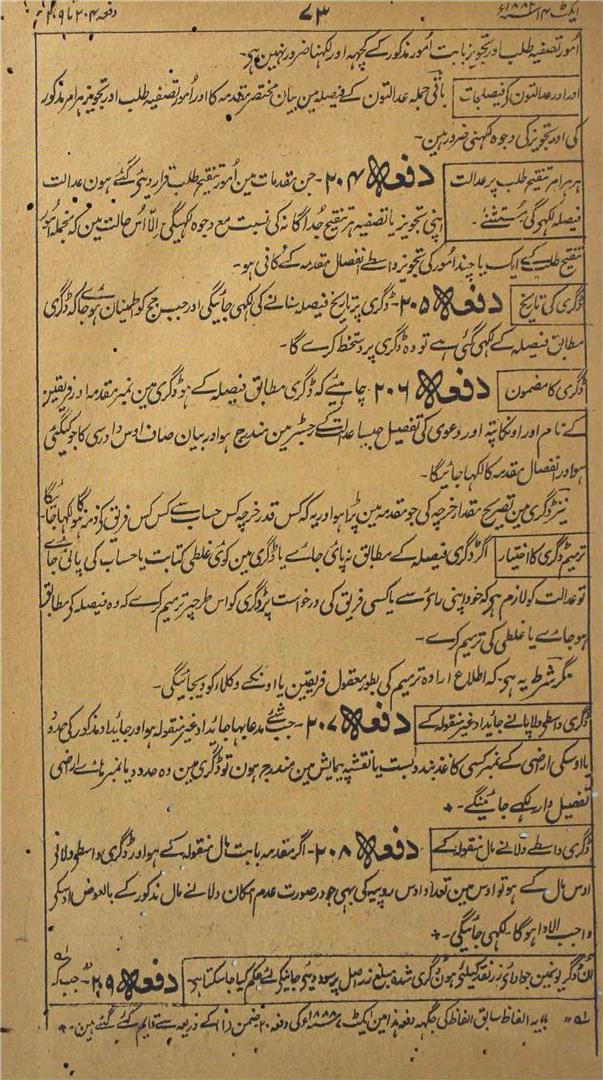 ایکٹ ۱۴ سنہ ۱۸۸۲ء ۷۳ دفعہ ۲۰۴ تا ۲۰۹
اُمور تصفیہ طلب اور تجویز بابت اُمور مذکور کے کچہہ اور لکہنا ضرور نہین ہی۔
اور اور عدالتون کے فیصلجات باقی جملہ عدالتون کے فیصلہ مین بیان مختصر مقدمہ کا اور اُمور تصفیہ طلب اور تجویز ہر امر مذکور
کی اور تجویز کی وجوہ لکہنی ضرور ہین۔
ہر ہر امر تنقیح طلب پر عدالت دفعہ ۲۰۴۔ جن مقدمات مین اُمور تنقیح طلب قرار دیئے گئے ہون عدالت
فیصلہ لکہیگی مستثنے۔ اپنی تجویز یا تصفیہ ہر تنقیح جداگانہ کی نسبت مع وجوہ لکہیگی اِلّا اُس حالت مین کہ منجملہ اُمور
تنقیح طلب کے ایک یا چند اُمور کی تجویز واسطے انفصال مقدمہ کے کافی ہو۔
ڈگری کی تاریخ دفعہ ۲۰۵۔ ڈگری پر تاریخ فیصلہ سنانے کی لکہی جائیگی اور جب جج کو اطمینان ہو جائے کہ ڈگری
مطابق فیصلہ کے لکہی گئی ہے تو وہ ڈگری پر دستخط کرے گا۔
ڈگری کا مضمون دفعہ ۲۰۶۔ چاہیئے کہ ڈگری مطابق فیصلہ کے ہو ڈگری مین نمبر مقدمہ اور فریقین
کے نام اور اونکا پتہ اور دعوی کی تفصیل جیسا عدالت کے رجسٹر مین مندرج ہو اور بیان صاف اوس دادرسی کا جو کیگئی
ہو اور انفصال مقدمہ کا لکہا جائیگا۔
نیز ڈگری مین تصریح مقدار خرچہ کی جو مقدمہ مین پڑا ہو اور یہ کہ کس قدر خرچہ کس حساب سے کس کس فریق کے ذمہ ہوگا لکہا جائیگا
ترمیم ڈگری کا اختیار اگر ڈگری فیصلہ کے مطابق نہ پائی جائے یا ڈگری مین کوئی غلطی کتابت یا حساب کی پائی جائے
تو عدالت کو لازم ہی کہ خود اپنی رائے سے یا کسی فریق کی درخواست پر ڈگری کو اس طرح پر ترمیم کرے کہ وہ فیصلہ کی مطابق
ہو جائے یا غلطی کی ترمیم کرے۔
مگر شرط یہ ہی کہ اطلاع ارادہ ترمیم کی بطور معقول فریقین یا اونکے وکلاء کو دیجائیگی۔
ڈگری واسطے دلاپانے جائیداد غیر منقولہ کے دفعہ ۲۰۷۔ جب شئے مدعا بہا جائیداد غیر منقولہ ہو اور جائیداد مذکور کی حدود
یا اوسکی اراضی کے نمبر کسی کاغذ بندوبست یا نقشہ پیمایش مین مندرج ہون تو ڈگری مین وہ حدود یا نمبر ہائے اراضی
تفصیل وار لکہے جائینگے۔
ڈگری واسطے دلانے مال منقولہ کے دفعہ ۲۰۸۔ اگر مقدمہ بابت مال منقولہ کے ہو اور ڈگری واسطے دلانے
اوس مال کے ہو تو اوس مین تعداد اوس روپیہ کی بہی جو در صورت عدم امکان دلانے مال مذکور کے بالعوض اوسکے
واجب الادا ہوگا۔ لکہی جائیگی۔
اُن ڈگریونمین جو ادائے زر نقد کیلئے ہون ڈگری شدہ مبلغ زر اصل پر سود دئے جانیکے لئے حکم کیا جا سکتا ہی دفعہ ۲۰۹۔ جب کہ
یہ الفاظ سابق الفاظ کی جگہہ دفعہ ہذا مین ایکٹ ۷ سنہ ۱۸۸۸ء کی دفعہ ۲۰ ضمن (۱) کے ذریعہ سے قایم کئے گئے ہین۔